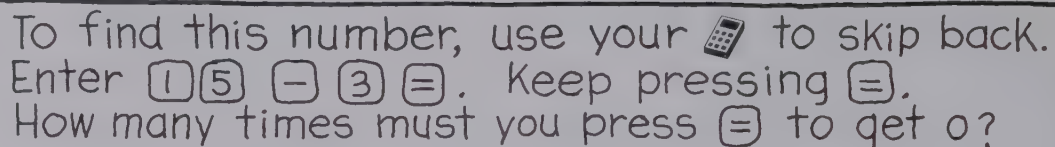 To find this number, use your to skip back.
Enter 1 5 - 3 =. Keep pressing =.
How many times must you press = to get 0?